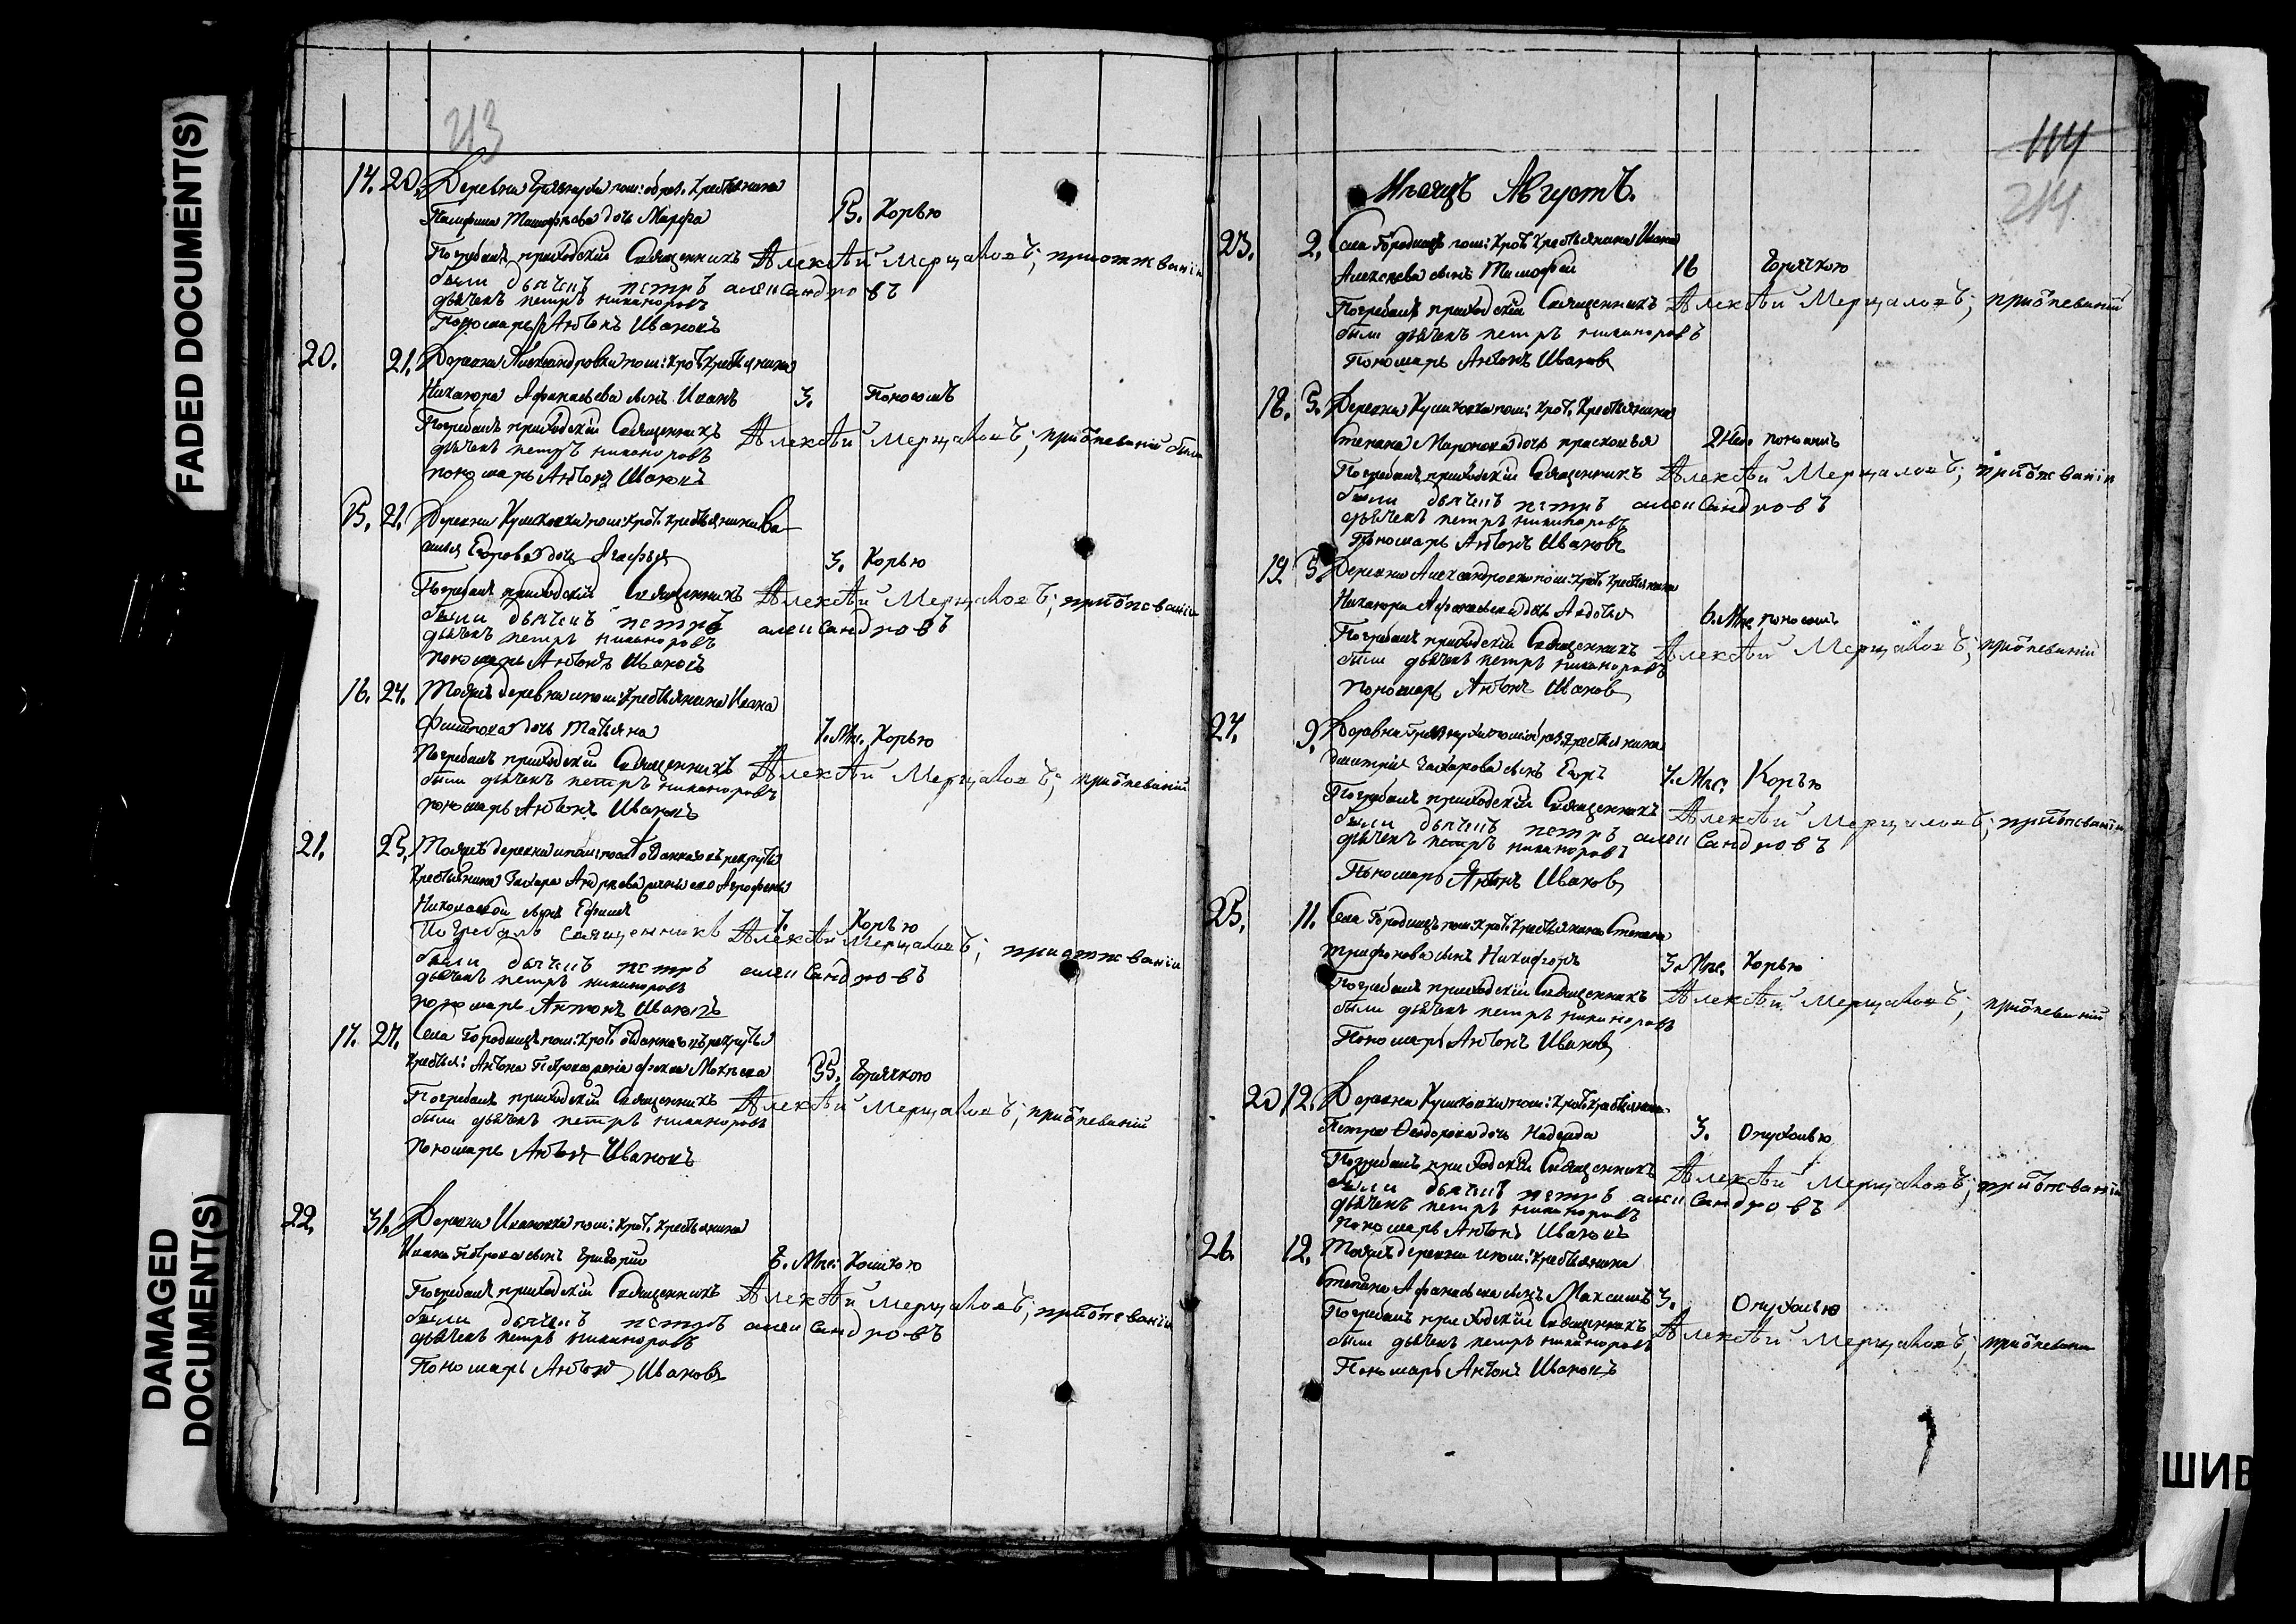 FADED DOCUMENT(S)
DAMAGED DOCUMENT(S)
213
14. 20. Деревни пом: крестьянина
Тимофѣева дочь Марфа 15. Корью
Погребалъ приходскій Священникъ Алексѣй Мерцаловъ; при отпѣваніи
были дьячекъ петръ александровъ
дьячекъ петръ никаноровъ
Пономарь Антонъ Ивановъ
20. 21. Деревни Александровки пом: Крот. Крестьянина
Никанора Афанасьева сынъ Иванъ 3. Поносомъ
Погребалъ приходскій Священникъ Алексѣй Мерцаловъ; при отпеваніи были
дьячекъ петръ никаноровъ
пономарь Антонъ Ивановъ
15. 21. Деревни Кушковки пом: Крот. крестьянина Ва
силья Егорова дочь Агафья 3. Корью
Погребалъ приходскій Священникъ Алексѣй Мерцаловъ; при отпеваніи
были дьячекъ петръ александровъ
дьячекъ петръ никаноровъ
пономарь Антонъ Ивановъ
16. 24. Тояжъ деревни и пом: Крестьянина Ивана
Филипова дочь Татьяна 7. Мце. Корью
Погребалъ приходскій Священникъ Алексѣй Мерцаловъ; при отпеваніи
были дьячекъ петръ никаноровъ
пономарь Антонъ Ивановъ
21. 25. Тояжъ деревни и пом: отданнаго въ рекруты
Крестьянина Захара Андреева жены его Агрофены
Николаевой сынъ Ефимъ 7. Корью
Погребалъ священникъ Алексѣй Мерцаловъ; при отпѣваніи
были дьячекъ петръ александровъ
дьячекъ петръ никаноровъ
пономарь Антонъ Ивановъ
17. 27. Села Городищъ пом: Крот. отданнаго въ рекруты
Крестья: Антона Петрова Мокѣева 55. Горячкою
Погребалъ приходскій Священникъ Алексѣй Мерцаловъ; при отпеваніи
были дьячекъ петръ никаноровъ
Пономарь Антонъ Ивановъ
22. 31. Деревни Ивановки пом: Крот. Крестьянина
Ивана Петрова сынъ Григорій 8. Мце:
Погребалъ приходскій Священникъ Алексѣй Мерцаловъ; при отпеваніи
были дьячекъ петръ александровъ
дьячекъ петръ никаноровъ
Пономарь Антонъ Ивановъ
114
214
Мѣсяцъ Августъ.
23. 2. Села Городищъ пом: Крот. Крестьянина Ивана
Алексеева сынъ Тимофей 16 Горячкою
Погребалъ приходскій Священникъ Алексѣй Мерцаловъ; при отпеваніи
были дьячекъ петръ никаноровъ
Пономарь Антонъ Ивановъ
18. 5. Деревни Кушковки пом: Крот. Крестьянина
Степана Миронова дочь прасковья 2 Нед. поносомъ
Погребалъ приходскій Священникъ Алексѣй Мерцаловъ; при отпѣваніи
были дьячекъ петръ александровъ
дьячекъ петръ никаноровъ
Пономарь Антонъ Ивановъ
19. 5. Деревни Александровки пом: Крот. Крестьянина
Никанора Афанасьева дочь Авдотья 6. Мце. поносомъ
Погребалъ приходскій Священникъ Алексѣй Мерцаловъ; при отпеваніи
были дьячекъ петръ никаноровъ
Пономарь Антонъ Ивановъ
24. 9. Деревни крестьянина
Дмитрія Захарова сынъ Егоръ 7. Мце: Корью
Погребалъ приходскій Священникъ Алексѣй Мерцаловъ; при отпеваніи
были дьячекъ петръ александровъ
дьячекъ петръ никаноровъ
Пономарь Антонъ Ивановъ
25. 11. Села Городищъ пом: Крот. Крестьянина Степана
Трифонова сынъ Никифоръ 3. Мце. Корью
Погребалъ приходскій Священникъ Алексѣй Мерцаловъ; при отпеваніи
были дьячекъ петръ никаноровъ
Пономарь Антонъ Ивановъ
20 12. Деревни Кушковки пом: Крот. Крестьянина
Петра Феодорова дочь Надежда 3. Опухолью
Погребалъ приходскій Священникъ Алексѣй Мерцаловъ; при отпѣваніи
были дьячекъ петръ александровъ
дьячекъ петръ никаноровъ
пономарь Антонъ Ивановъ
26. 12. Тояжъ деревни и пом: крестьянина
Степана Афанасьева сынъ Максимъ 3. Опухолью
Погребалъ приходскій Священникъ Алексѣй Мерцаловъ; при отпевани
были дьячекъ петръ никаноровъ
Пономарь Антонъ Ивановъ
ШИВ